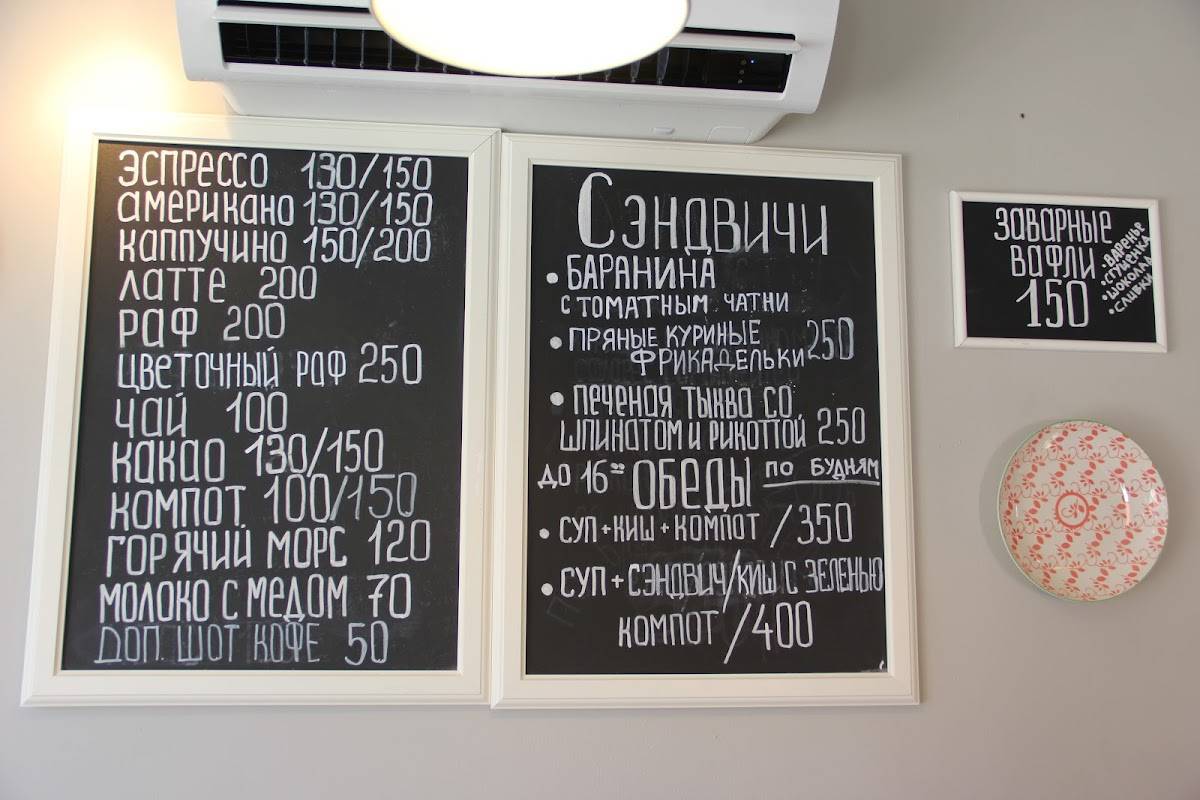 ЭСПРЕССО 130/150
АМЕРИКАНО 130/150
КАППУЧИНО 150/200
ЛАТТЕ 200
РАФ 200
ЦВЕТОЧНЫЙ РАФ 250
ЧАЙ 100
КАКАО 130/150
КОМПОТ 100/150
ГОРЯЧИЙ МОРС 120
МОЛОКО С МЕДОМ 70
ДОП. ШОТ КОФЕ 50
СЭНДВИЧИ
• БАРАНИНА
С ТОМАТНЫМ ЧАТНИ
• ПРЯНЫЕ КУРИНЫЕ
ФРИКАДЕЛЬКИ 250
• ПЕЧЕНАЯ ТЫКВА СО
ШПИНАТОМ И РИКОТТОЙ 250
ДО 16⁰⁰ ОБЕДЫ ПО БУДНЯМ
• СУП+КИШ+КОМПОТ /350
• СУП+СЭНДВИЧ/КИШ С ЗЕЛЕНЬЮ
КОМПОТ /400
ЗАВАРНЫЕ
ВАФЛИ
150
• ВАРЕНЬЕ
• СГУЩЕНКА
• ШОКОЛАД
• СЛИВКИ